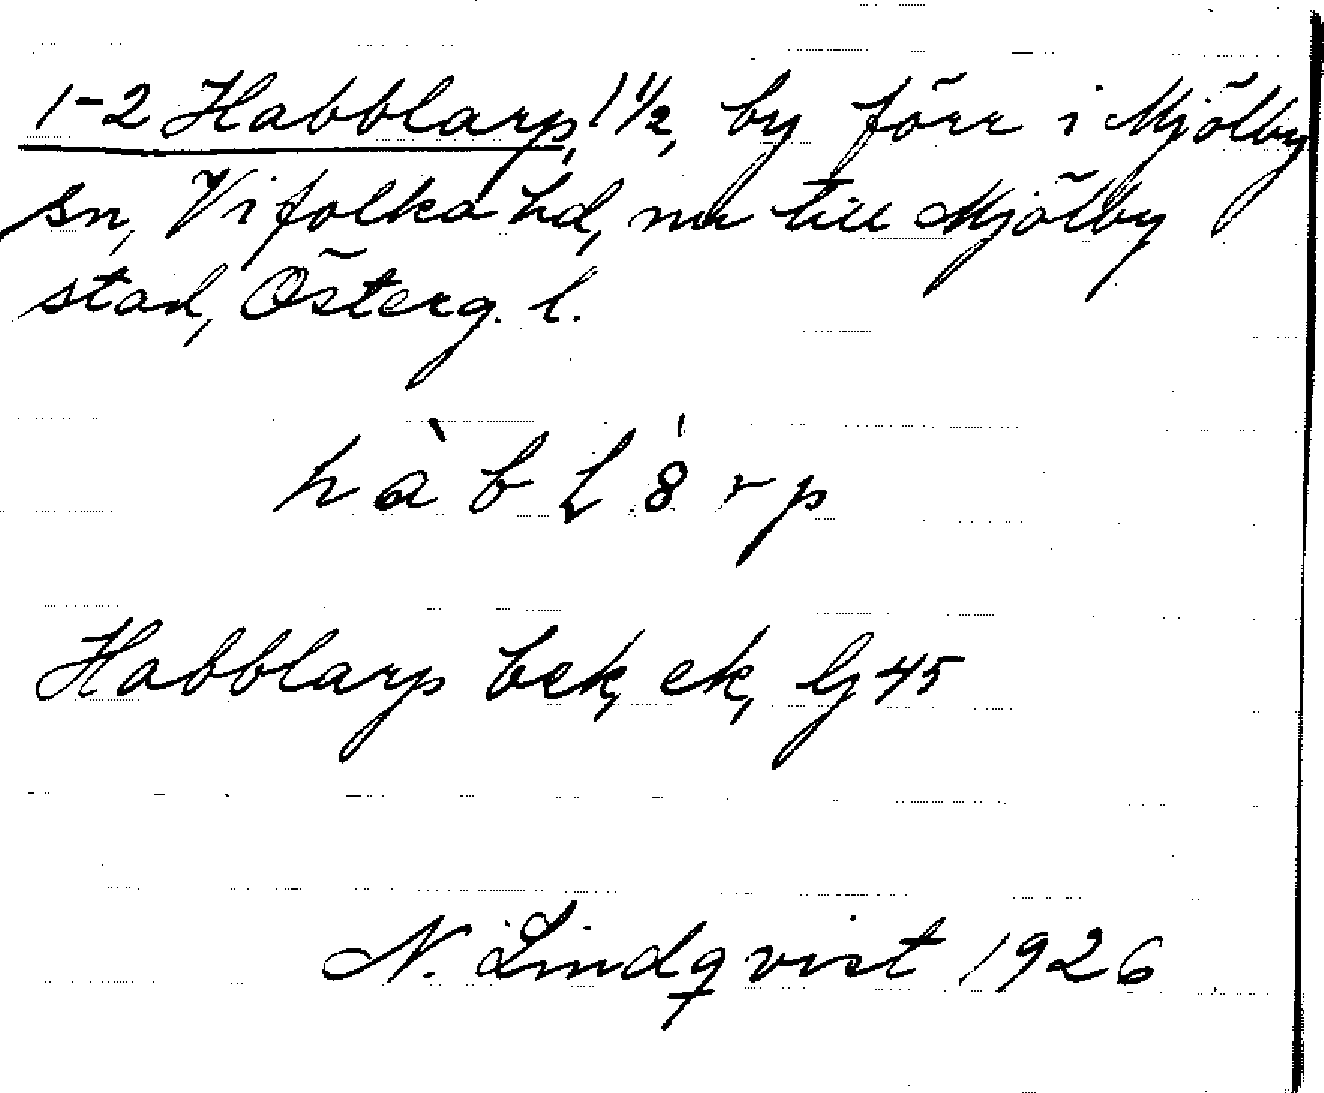 1-2 Habblarp, 1 1/2, by förr i Mjölby
sn, Vifolka hd, nu till Mjölby
stad, Österg. l.
hàbḷ8́rp
Habblarp bek, ek, Gj 45
N. Lindqvist 1926